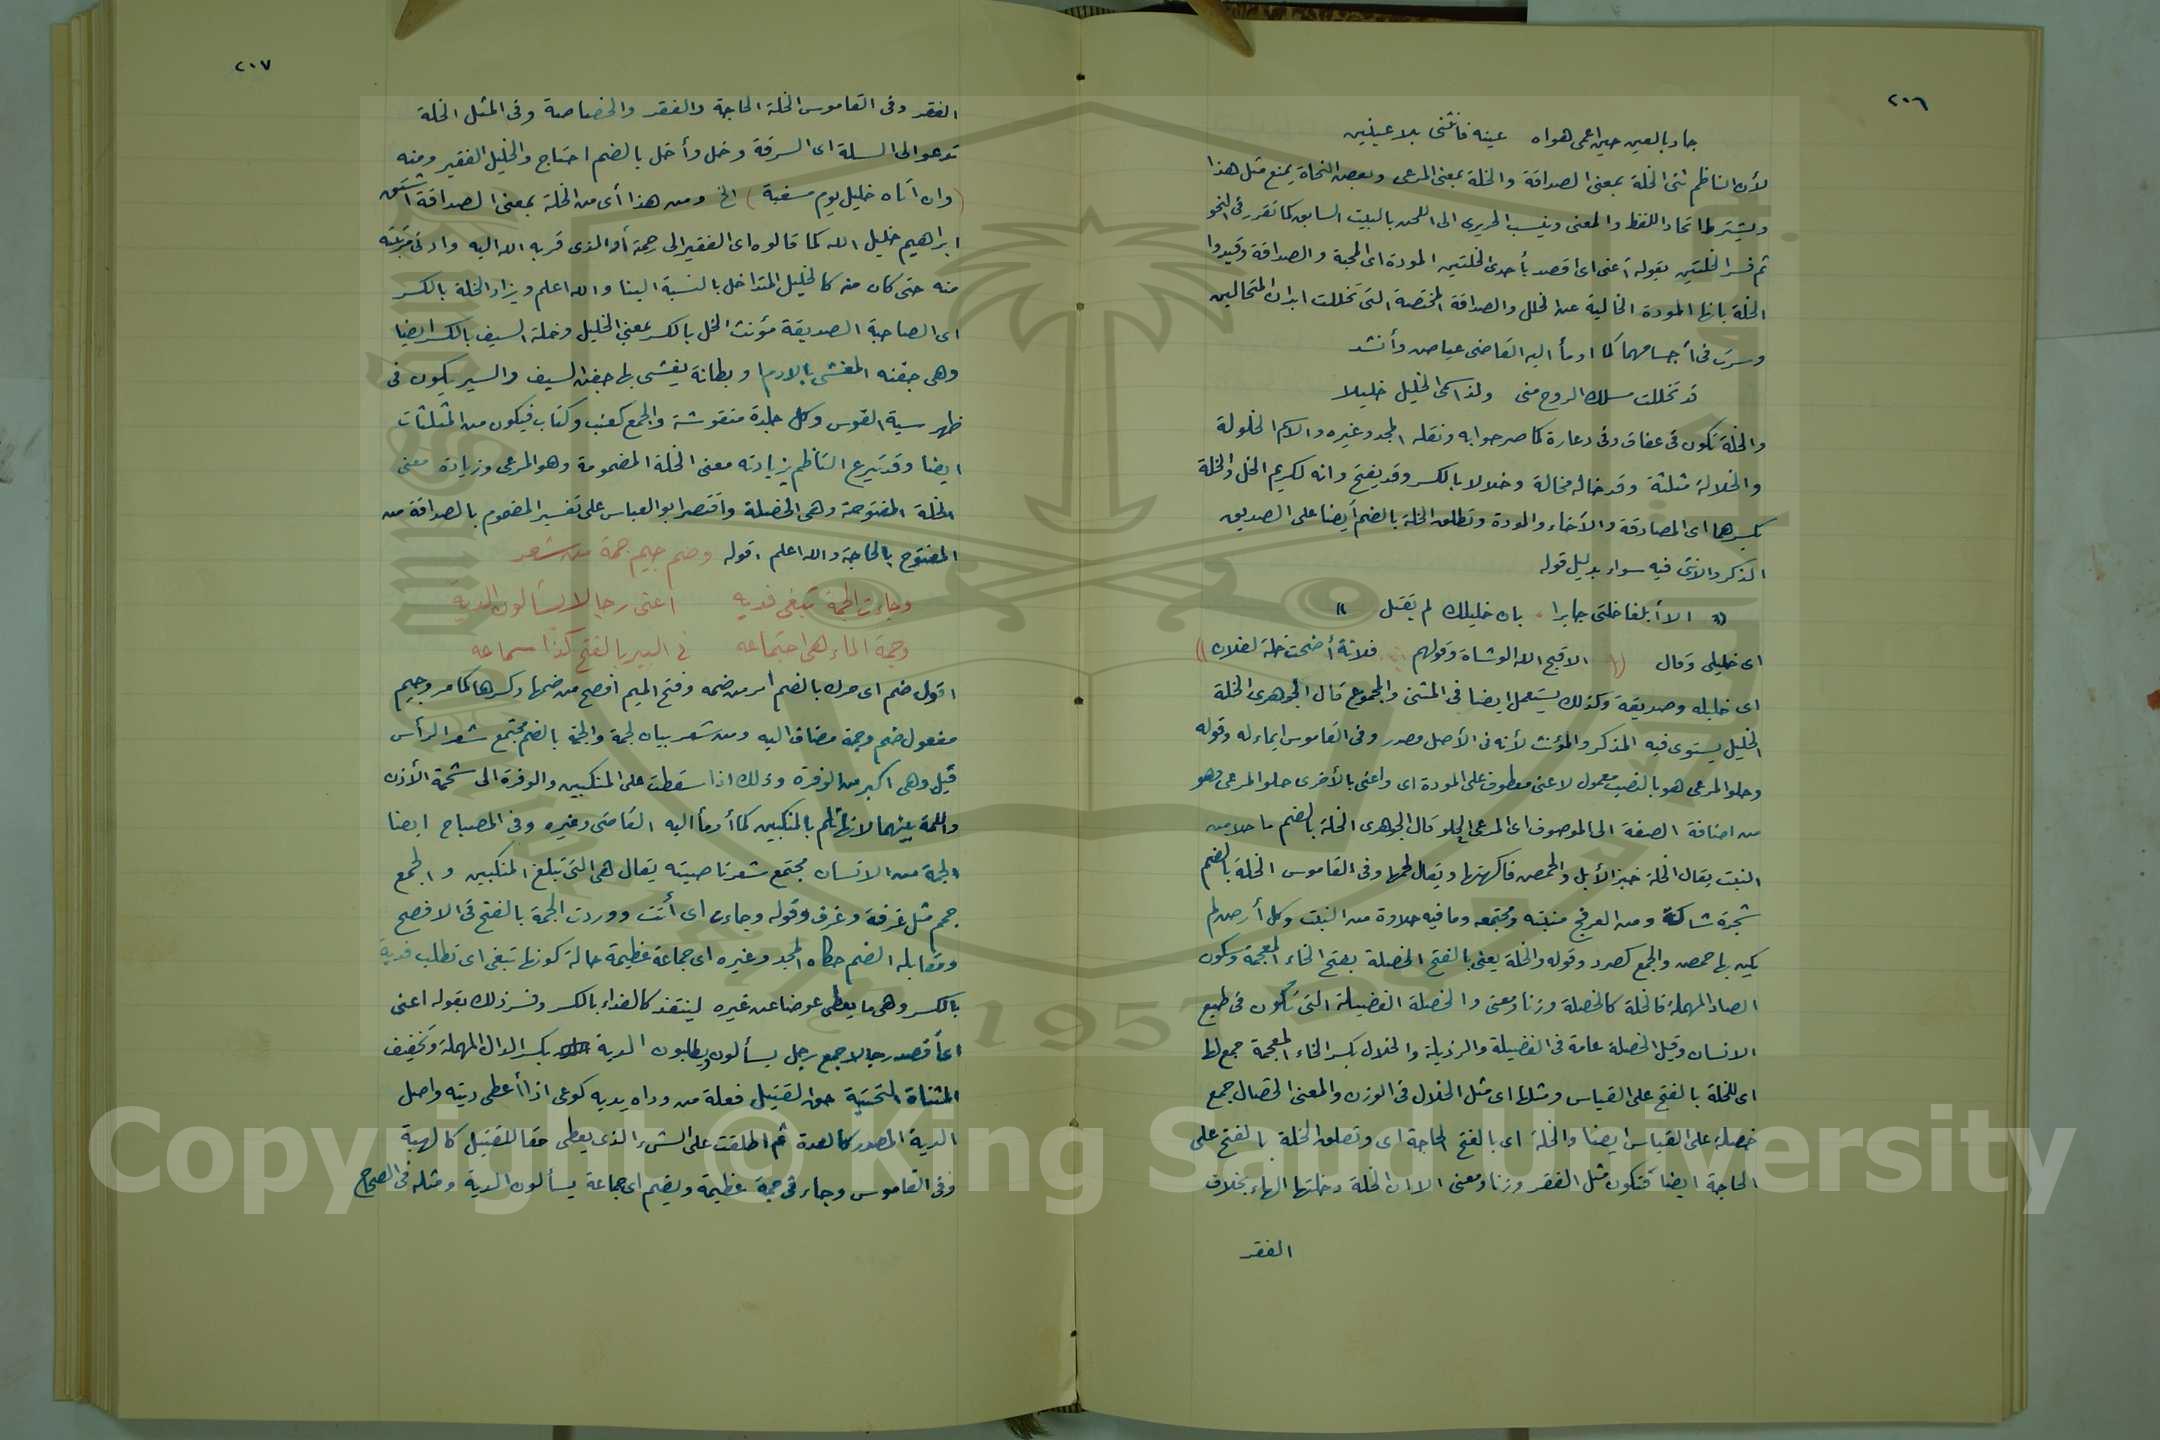 ٢٠٦
جاد بالعين حين اعمى هواه عينه فانثنى بلا عينين
لأن الناظم ثنى الخلة بمعنى الصداقة والخلة بمعنى المرعى وبعض النحاة يمنع مثل هذا
ويشترط اتحاد اللفظ والمعنى وينسب الحريرى الى اللحن بالبيت السابق كما تقرر فى النحو
ثم فسر الخلتين بقوله أعنى اى اقصد بأحدى الخلتين المودة اى المحبة والصداقة وقيدوا
الخلة بانها المودة الخالية عن الخلل والصداقة المختصة التى تخللت ابدان المتخالين
وسرت فى أجسامهما كما اومأ اليه القاضى عياض وأنشد
قد تخللت مسلك الروح منى ولذا سمى الخليل خليلا
والخلة تكون فى عفاف وفى دعارة كما صرحوا به ونقله المجد وغيره والاسم الخلولة
والخلالة مثلثة وقد خاله مخالة وخلالا بالكسر وقد يفتح وانه لكريم الخل والخلة
بكسرهما اى المصادقة والأخاء والمودة وتطلق الخلة بالضم أيضا على الصديق
الذكر والانثى فيه سواء بدليل قوله
(( الا أبلغا خلتى جابرا بان خليلك لم يقتل ))
اى خليلى وقال (( الا قبح الله الوشاة وقولهم فلانة أضحت خلة لفلان ))
اى خليله وصديقة وكذلك يستعمل ايضا فى المثنى والمجموع قال الجوهرى الخلة
الخليل يستوى فيه المذكر والمؤنث لأنه فى الأصل مصدر وفى القاموس ايماء له وقوله
وحلو المرعى هو بالنصب معمول لا عنى معطوف على المودة اى واعنى بالأخرى حلو المرعى فهو
من اضافة الصفة الى الموصوف اى المرعى الحلو قال الجوهرى الخلة بالضم ما حلا من
النبت يقال الخلة خبز الأبل والحمض فاكهتها ويقال لحمها وفى القاموس الخلة بالضم
شجرة شاكة ومن العرفج منبته ومجتمعه وما فيه حلاوة من النبت وكل أرض لم
يكن بها حمض والجمع كصرد وقوله والخلة يعنى بالفتح الخصلة بفتح الخاء المعجمة وسكون
الصاد المهملة فالخلة كالخصلة وزنا ومعنى والخصلة الفضيلة التى تكون فى طبع
الانسان وقيل الخصلة عامة فى الفضيلة والرذيلة والخلال بكسر الخاء المعجمة جمع لها
اى للخلة بالفتح على القياس ومثلها اى مثل الخلال فى الوزن والمعنى الخصال جمع
خصلة على القياس ايضا والخلة اى بالفتح الحاجة اى وتطلق الخلة بالفتح على
الحاجة ايضا فتكون مثل الفقر وزنا ومعنى الا ان الخلة دخلتها الهاء بخلاف
الفقر
٢٠٧
الفقر وفى القاموس الخلة الحاجة والفقر والخصاصة وفى المثل الخلة
تدعو الى السلة اى السرقة وخل وأخل بالضم احتاج والخليل الفقير ومنه
(وان أتاه خليل يوم مسغبة) الخ ومن هذا أى من الخلة بمعنى الصداقة اشتق
ابراهيم خليل الله كما قالوه اى الفقير الى رحمة أو الذى قربه الله اليه وادنى مرتبته
منه حتى كان منه كالخليل المتداخل بالنسبة الينا والله اعلم ويزاد الخلة بالكسر
اى الصاحبة الصديقة مؤنث الخل بالكسر بمعنى الخليل وخلة السيف بالكسر ايضا
وهى جفنه المغشى بالادم او بطانة يغشى بها جفن السيف والسير يكون فى
ظهر سية القوس وكل جلدة منقوشة والجمع كعنب وكتاب فيكون من المثلثات
ايضا وقد تبرع الناظم بزيادته معنى الخلة المضمومة وهو المرعى وزيادة معنى
الخلة المفتوحة وهى الخصلة واقتصر ابو العباس على تفسير المضموم بالصداقة من
المفتوح بالحاجة والله اعلم . قوله وضم جيم جمة من شعر
وجاءت الجمة تبغى فديه اعنى رجالا يسألون الديه
وجمة الماء هى اجتماعه فى البير بالفتح كذا سماعه
اقول ضم اى حرك بالضم امر من ضمه وفتح الميم افصح من ضمها وكسرها كما مر وجيم
مفعول ضم وجمة مضاف اليه ومن شعر بيان لجمة والجمة بالضم مجتمع شعر الرأس
قيل وهى اكبر من الوفرة وذلك اذا سقطت على المنكبين والوفرة الى شحمة الأذن
واللمة بينهما لانها تلم بالمنكبين كما أومأ اليه القاضى وغيره وفى المصباح ايضا
الجمة من الانسان مجتمع شعر ناصيته يقال هى التى تبلغ المنكبين والجمع
جمم مثل غرفة وغرف وقوله وجاءت اى أتت ووردت الجمة بالفتح فى الافصح
ومقابله الضم حكاه المجد وغيره اى جماعة عظيمة حالة كونها تبغى اى تطلب فدية
بالكسر وهى ما يعطى عوضا عن غيره لينقذ كالفداء بالكسر وفسر ذلك بقوله اعنى
اى أقصد رجالا جمع رجل يسألون ويطلبون الدية بكسر الدال المهملة وتخفيف
المثناة التحتية حق القتيل فعلة من وداه يديه كوعى اذا أعطى ديته واصل
الدية المصدر كالعدة ثم اطلقت على الشىء الذى يعطى حقا للقتيل كالهبة
وفى القاموس وجاء فى جمة عظيمة ويضم اى جماعة يسألون الدية ومثله فى الصحاح
1957
Copyright © King Saud University